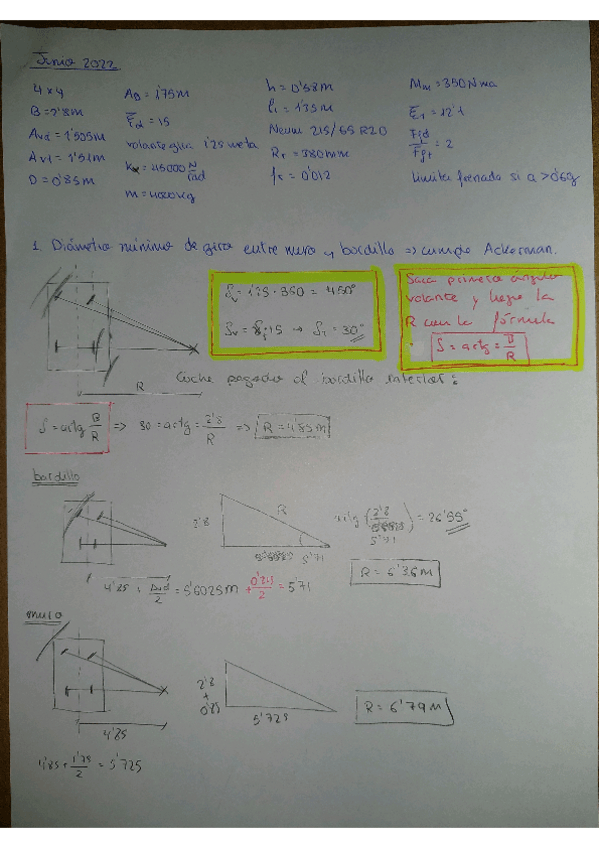 Junio 2022
4x4
B=2'8m
Avd=1'505m
Avt=1'51m
D=0'85m
AB=1'75m
ξd=15
volante gira 1'25 vueltas
Kα=45000 N/rad
h=0'58m
l1=1'35m
Neum 215/65 R20
Rr=380mm
fr=0'012
Mm=350Nma
ξ1=12'1
Ffd/Fft=2
limita frenado si a>0'6g
1. Diámetro mínimo de giro entre muro y bordillo => cumple Ackerman.
δv=1'25·360=450°
δv=δi·15 → δi=30°
Saca primero ángulo
volante y luego la
R con la fórmula
δ=actg=B/R
R
Coche pegado al bordillo interior:
δ=actg B/R => 30=actg=2'8/R => R=4'85m
bordillo
2'8
R
5'71
(2'8/5'71)=26'99°
4'85+Avd/2=5'6025m+0'215/2=5'71
R=6'36m
muro
4'85
2'8
+
0'85
5'725
R=6'79m
4'85+1'75/2=5'725